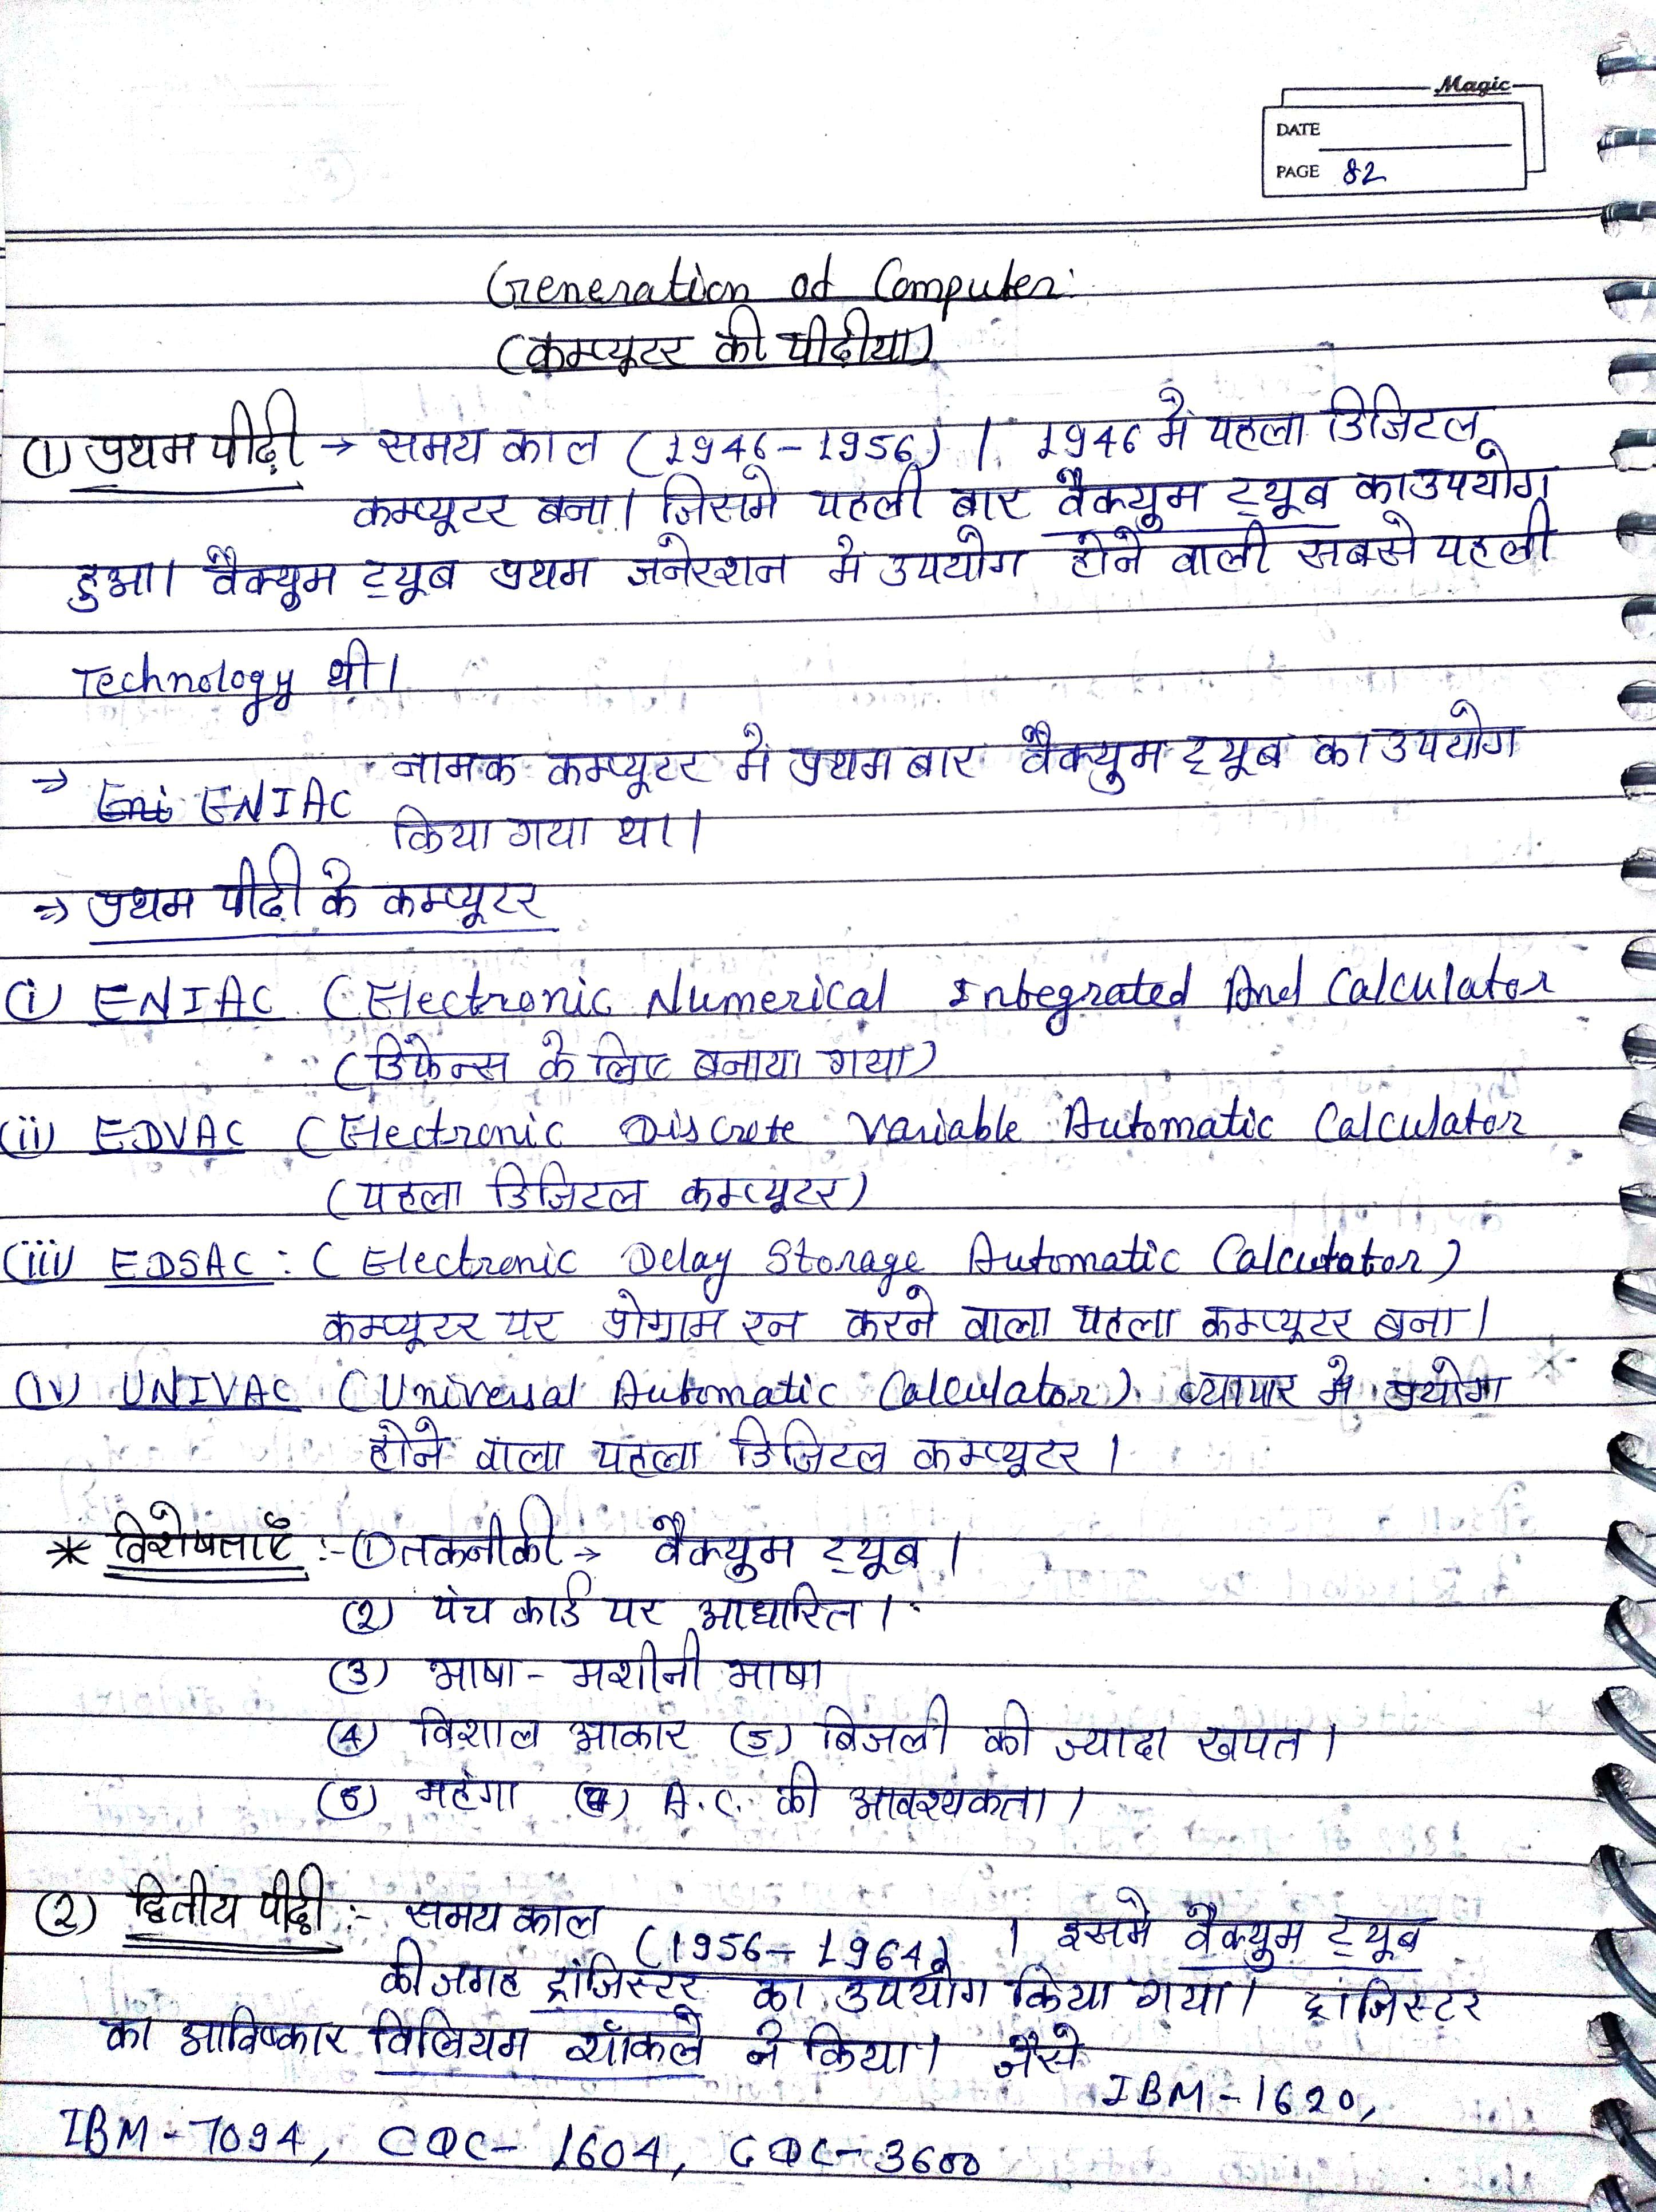 Magic
DATE
PAGE 82
Generation of Computer:
(कम्प्यूटर की पीढीया)
(1) प्रथम पीढ़ी → समय काल (1946-1956) । 1946 मे पहला डिजिटल
कम्प्यूटर बना। जिसमे पहली बार वैक्युम ट्यूब का उपयोग
हुआ। वैक्युम ट्यूब प्रथम जनेरशन मे उपयोग होने वाली सबसे पहली
Technology थी।
→ ENIAC नामक कम्प्यूटर मे प्रथम बार वैक्युम ट्यूब का उपयोग
किया गया था।
⇒ प्रथम पीढ़ी के कम्प्यूटर
(i) ENIAC (Electronic Numerical Integrated And Calculator
(डिफेन्स के लिए बनाया गया)
(ii) EDVAC (Electronic Discrete Variable Automatic Calculator
(पहला डिजिटल कम्प्यूटर)
(iii) EDSAC : (Electronic Delay Storage Automatic Calculator)
कम्प्यूटर पर प्रोग्राम रन करने वाला पहला कम्प्यूटर बना।
(iv) UNIVAC (Universal Automatic Calculator) व्यापार मे प्रयोग
होने वाला पहला डिजिटल कम्प्यूटर।
* विशेषताएँ :- (1) तकनीकी → वैक्युम ट्यूब।
(2) पंच कार्ड पर आधारित।
(3) भाषा - मशीनी भाषा
(4) विशाल आकार (5) बिजली की ज्यादा खपत।
(6) महंगा (7) A.C. की आवश्यकता।
(2) द्वितीय पीढ़ी :- समय काल (1956-1964) । इसमे वैक्युम ट्यूब
की जगह ट्रांजिस्टर का उपयोग किया गया। ट्रांजिस्टर
का आविष्कार विलियम शॉकले ने किया। जैसे IBM-1620,
IBM-7094, CDC-1604, CDC-3600